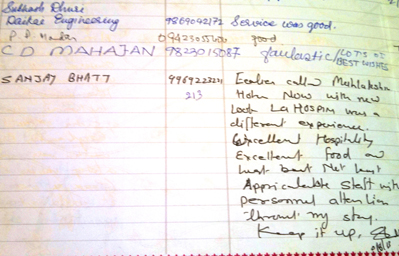 Subhash Dhuri
Daikai Engineering 9869042172 Service was good.
good
C D MAHAJAN 9823015087 fantastic/LOTS OF
BEST WISHES
SANJAY BHATT Earlier called Mahlakshmi
213 Hotel Now with new
Look La HOSPIN was a
different experience.
Excellent Hospitality
Excellent food and
last but Not least
Appriciable staff with
personnel attention
throut my stay.
Keep it up,